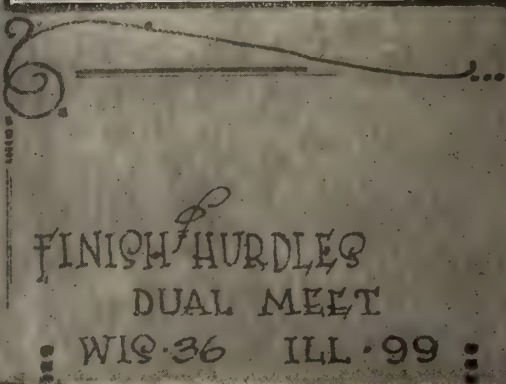 FINISH HURDLES
DUAL MEET
WIS·36 ILL·99